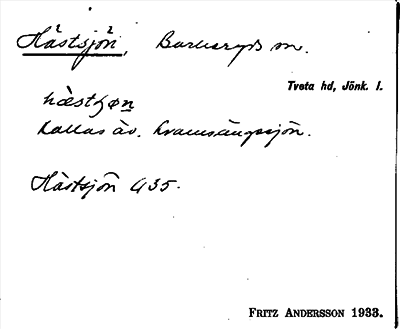 Hästsjön, Barkeryds sn.
Tveta hd, Jönk. l.
hæstʃøn
kallas äv. Kvarnsängssjön.
Hästsjön G35.
FRITZ ANDERSSON 1933.